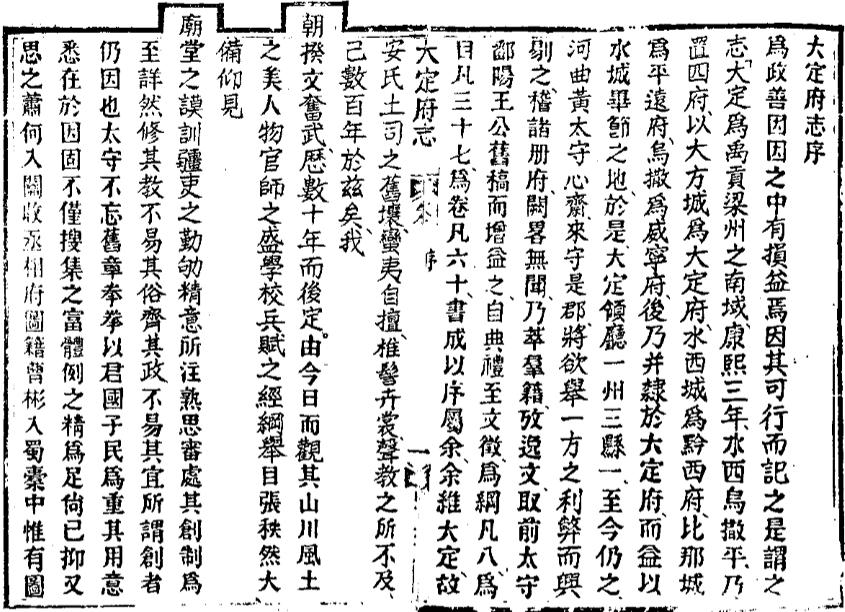 大定府志序
爲政善因因之中有損益焉因其可行而記之是謂之
志大定爲禹貢梁州之南域康熙三年水西烏撒平乃
置四府以大方城爲大定府水西城爲黔西府比那城
爲平遠府烏撒爲威寧府後乃并隸於大定府而益以
水城畢節之地於是大定領廳一州三縣一至今仍之
河曲黃太守心齋來守是郡將欲舉一方之利弊而興
剔之稽諸册府闕畧無聞乃萃羣籍攷逸文取前太守
鄱陽王公舊稿而增益之自典禮至文徵爲綱凡八爲
目凡三十七爲卷凡六十書成以序屬余余維大定故
大定府志 序 一
安氏土司之舊壤蠻夷自擅椎髻卉裳聲教之所不及
已數百年於兹矣我
朝揆文奮武歷數十年而後定由今日而觀其山川風土
之美人物官師之盛學校兵賦之經綱舉目張秩然大
備仰見
廟堂之謨訓疆吏之勤劬精意所注熟思審處其創制爲
至詳然修其教不易其俗齊其政不易其宜所謂創者
仍因也太守不忘舊章拳拳以君國子民爲重其用意
悉在於因固不僅搜集之富體例之精爲足尚已抑又
思之蕭何入關收丞相府圖籍曹彬入蜀橐中惟有圖